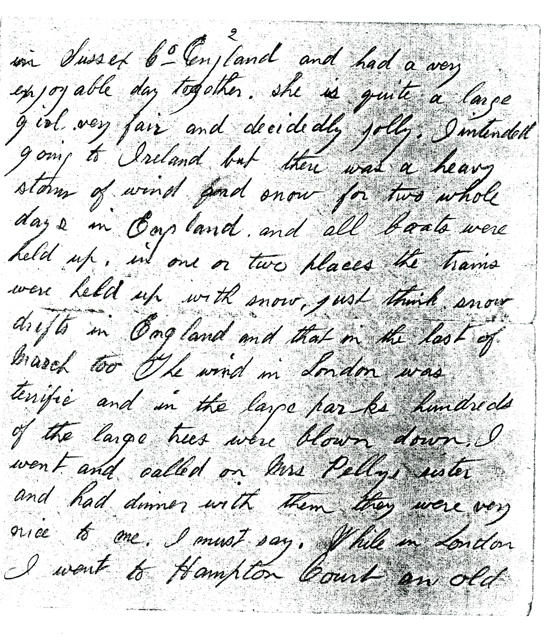 2
in Sussex Co England and had a very
enjoyable day together. she is quite a large
girl. very fair and decidedly jolly. I intended
going to Ireland but there was a heavy
storm of wind and snow for two whole
days in England. and all boats were
held up. in one or two places the trains
were held up with snow, just think snow
drifts in England and that in the last of
March too The wind in London was
terrific and in the large parks hundreds
of the large trees were blown down. I
went and called on Mrs Pellys sister
and had dinner with them they were very
nice to me. I must say. While in London
I went to Hampton Court an old